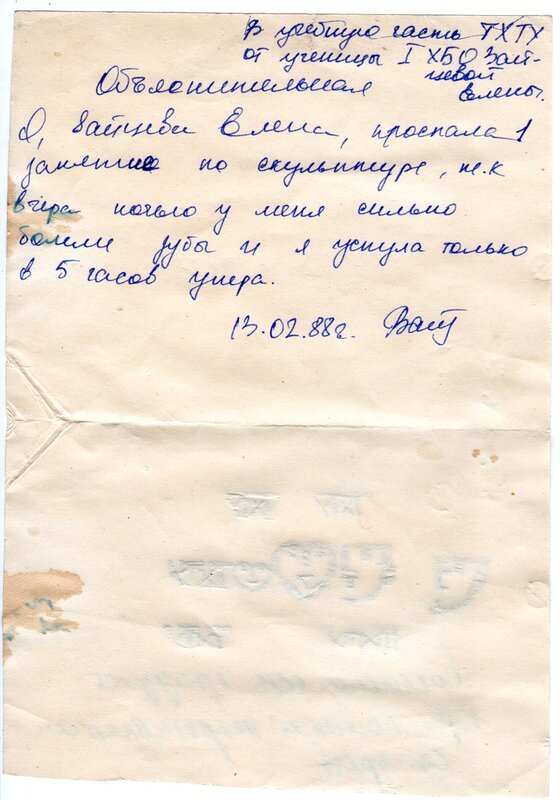 В учебную часть ТХТУ
от ученицы I ХБО Зай-
цевой
Елены.
Объяснительная
Я, Зайцева Елена, проспала 1
занятие по скульптуре, т.к
вчера ночью у меня сильно
болели зубы и я уснула только
в 5 часов утра.
13.02.88г. Зай